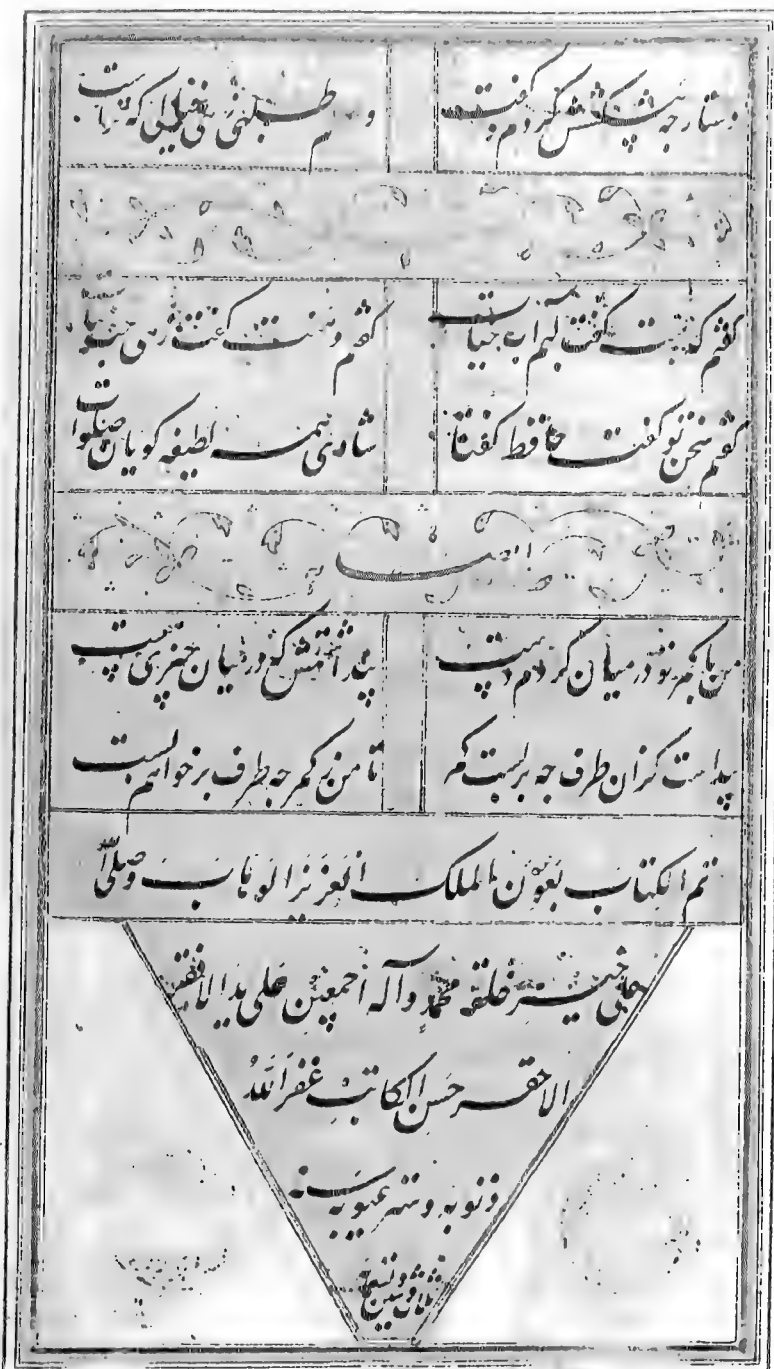 دستارجه پیشکشش کردم گفت وصلم طلبی زهی خیالی که تراست
کفتم که لبت کفت لبم آب حیات کفتم دهنت کفت زهی حب نبات
کفتم سخن تو کفت حافظ کفتا شادی همه لطیفه کویان صلوات
ایضا
من با کمر تو در میان کردم دست پنداشتمش که در میان چیزی هست
پیداست کزان طرف چه بربست کمر تا من ز کمر چه طرف بر خواهم بست
تم الکتاب بعون الملک العزیز الوهاب وصلی الله
علی خیر خلقه محمد وآله اجمعین علی ید الافقر
الاحقر حسن الکاتب غفر الله
ذنوبه وستر عیوبه سنه
ثمان وستین